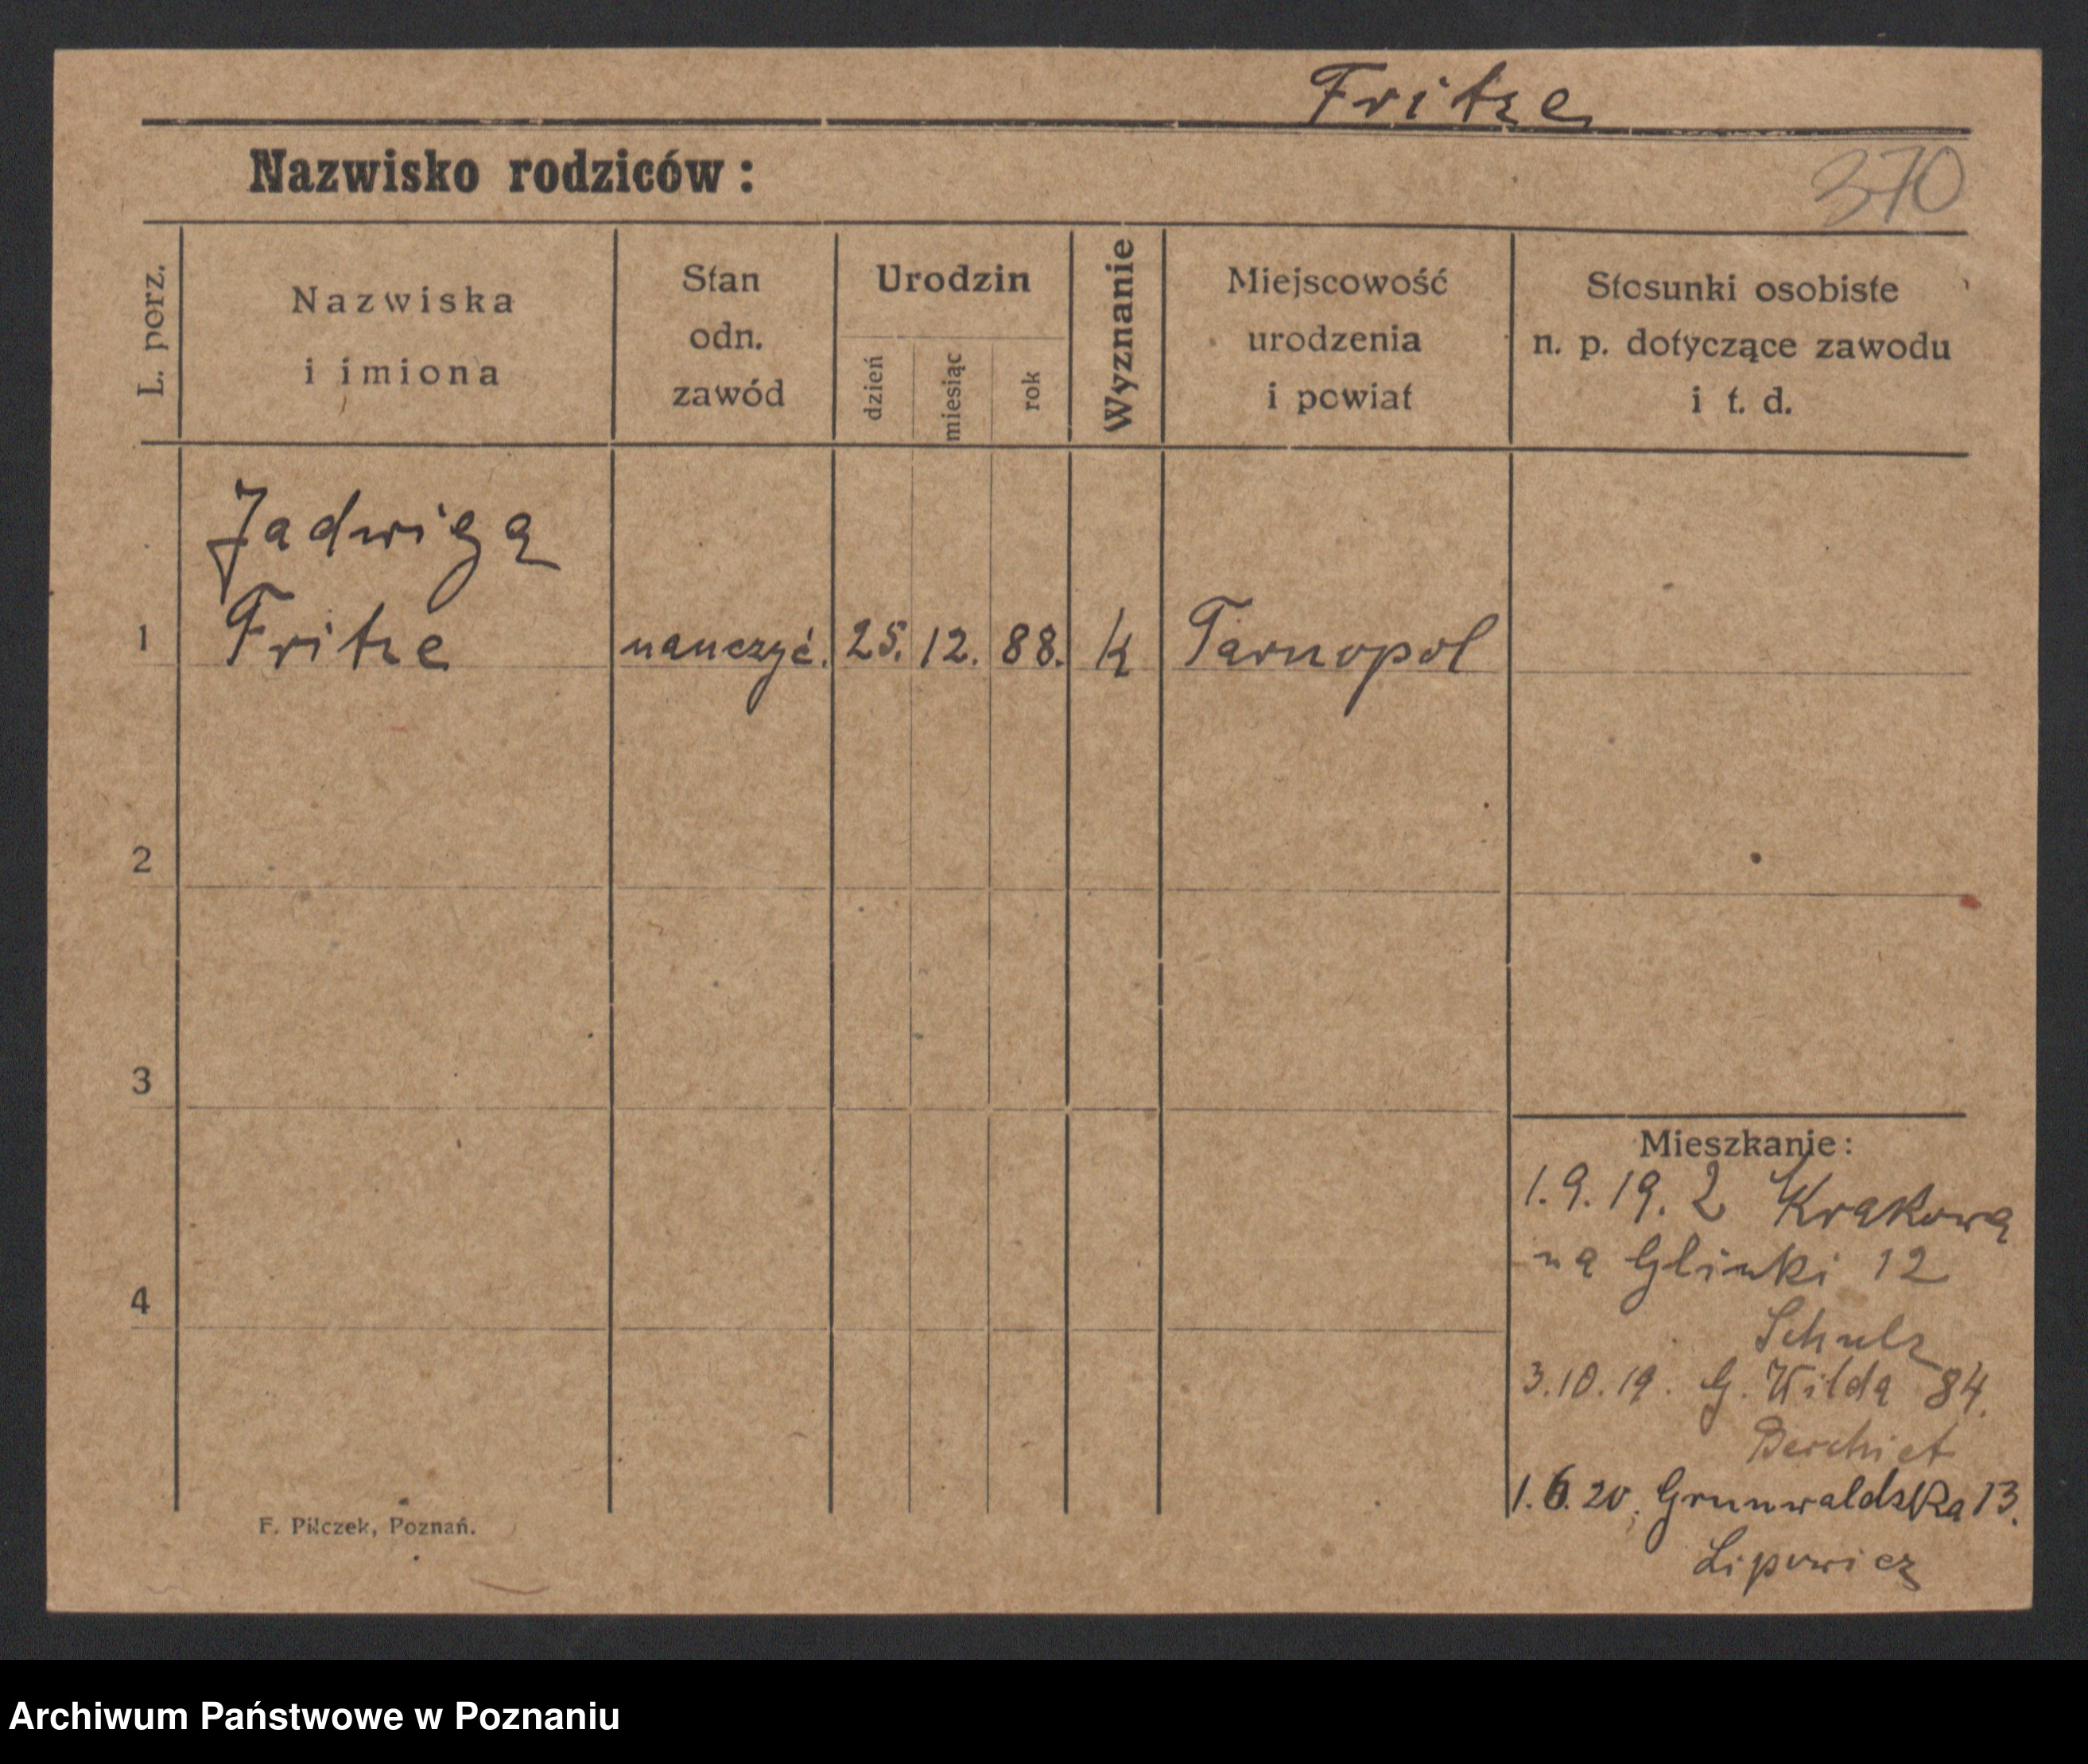 Fritze
Nazwisko rodziców:
370
L. porz.
Nazwiska
i imiona
Stan
odn.
zawód
Urodzin
dzień
miesiąc
rok
Wyznanie
Miejscowość
urodzenia
i powiat
Stosunki osobiste
n. p. dotyczące zawodu
i t. d.
Jadwiga
1 Fritze nauczyć. 25. 12. 88. k Tarnopol
2
3
4
Mieszkanie:
1.9.19. z Krakowa
na Glinki 12
Schulz
3.10.19. G. Wilda 84.
1.6.20. Grunwaldska 13.
Lipowicz
F. Pilczek, Poznań.
Archiwum Państwowe w Poznaniu